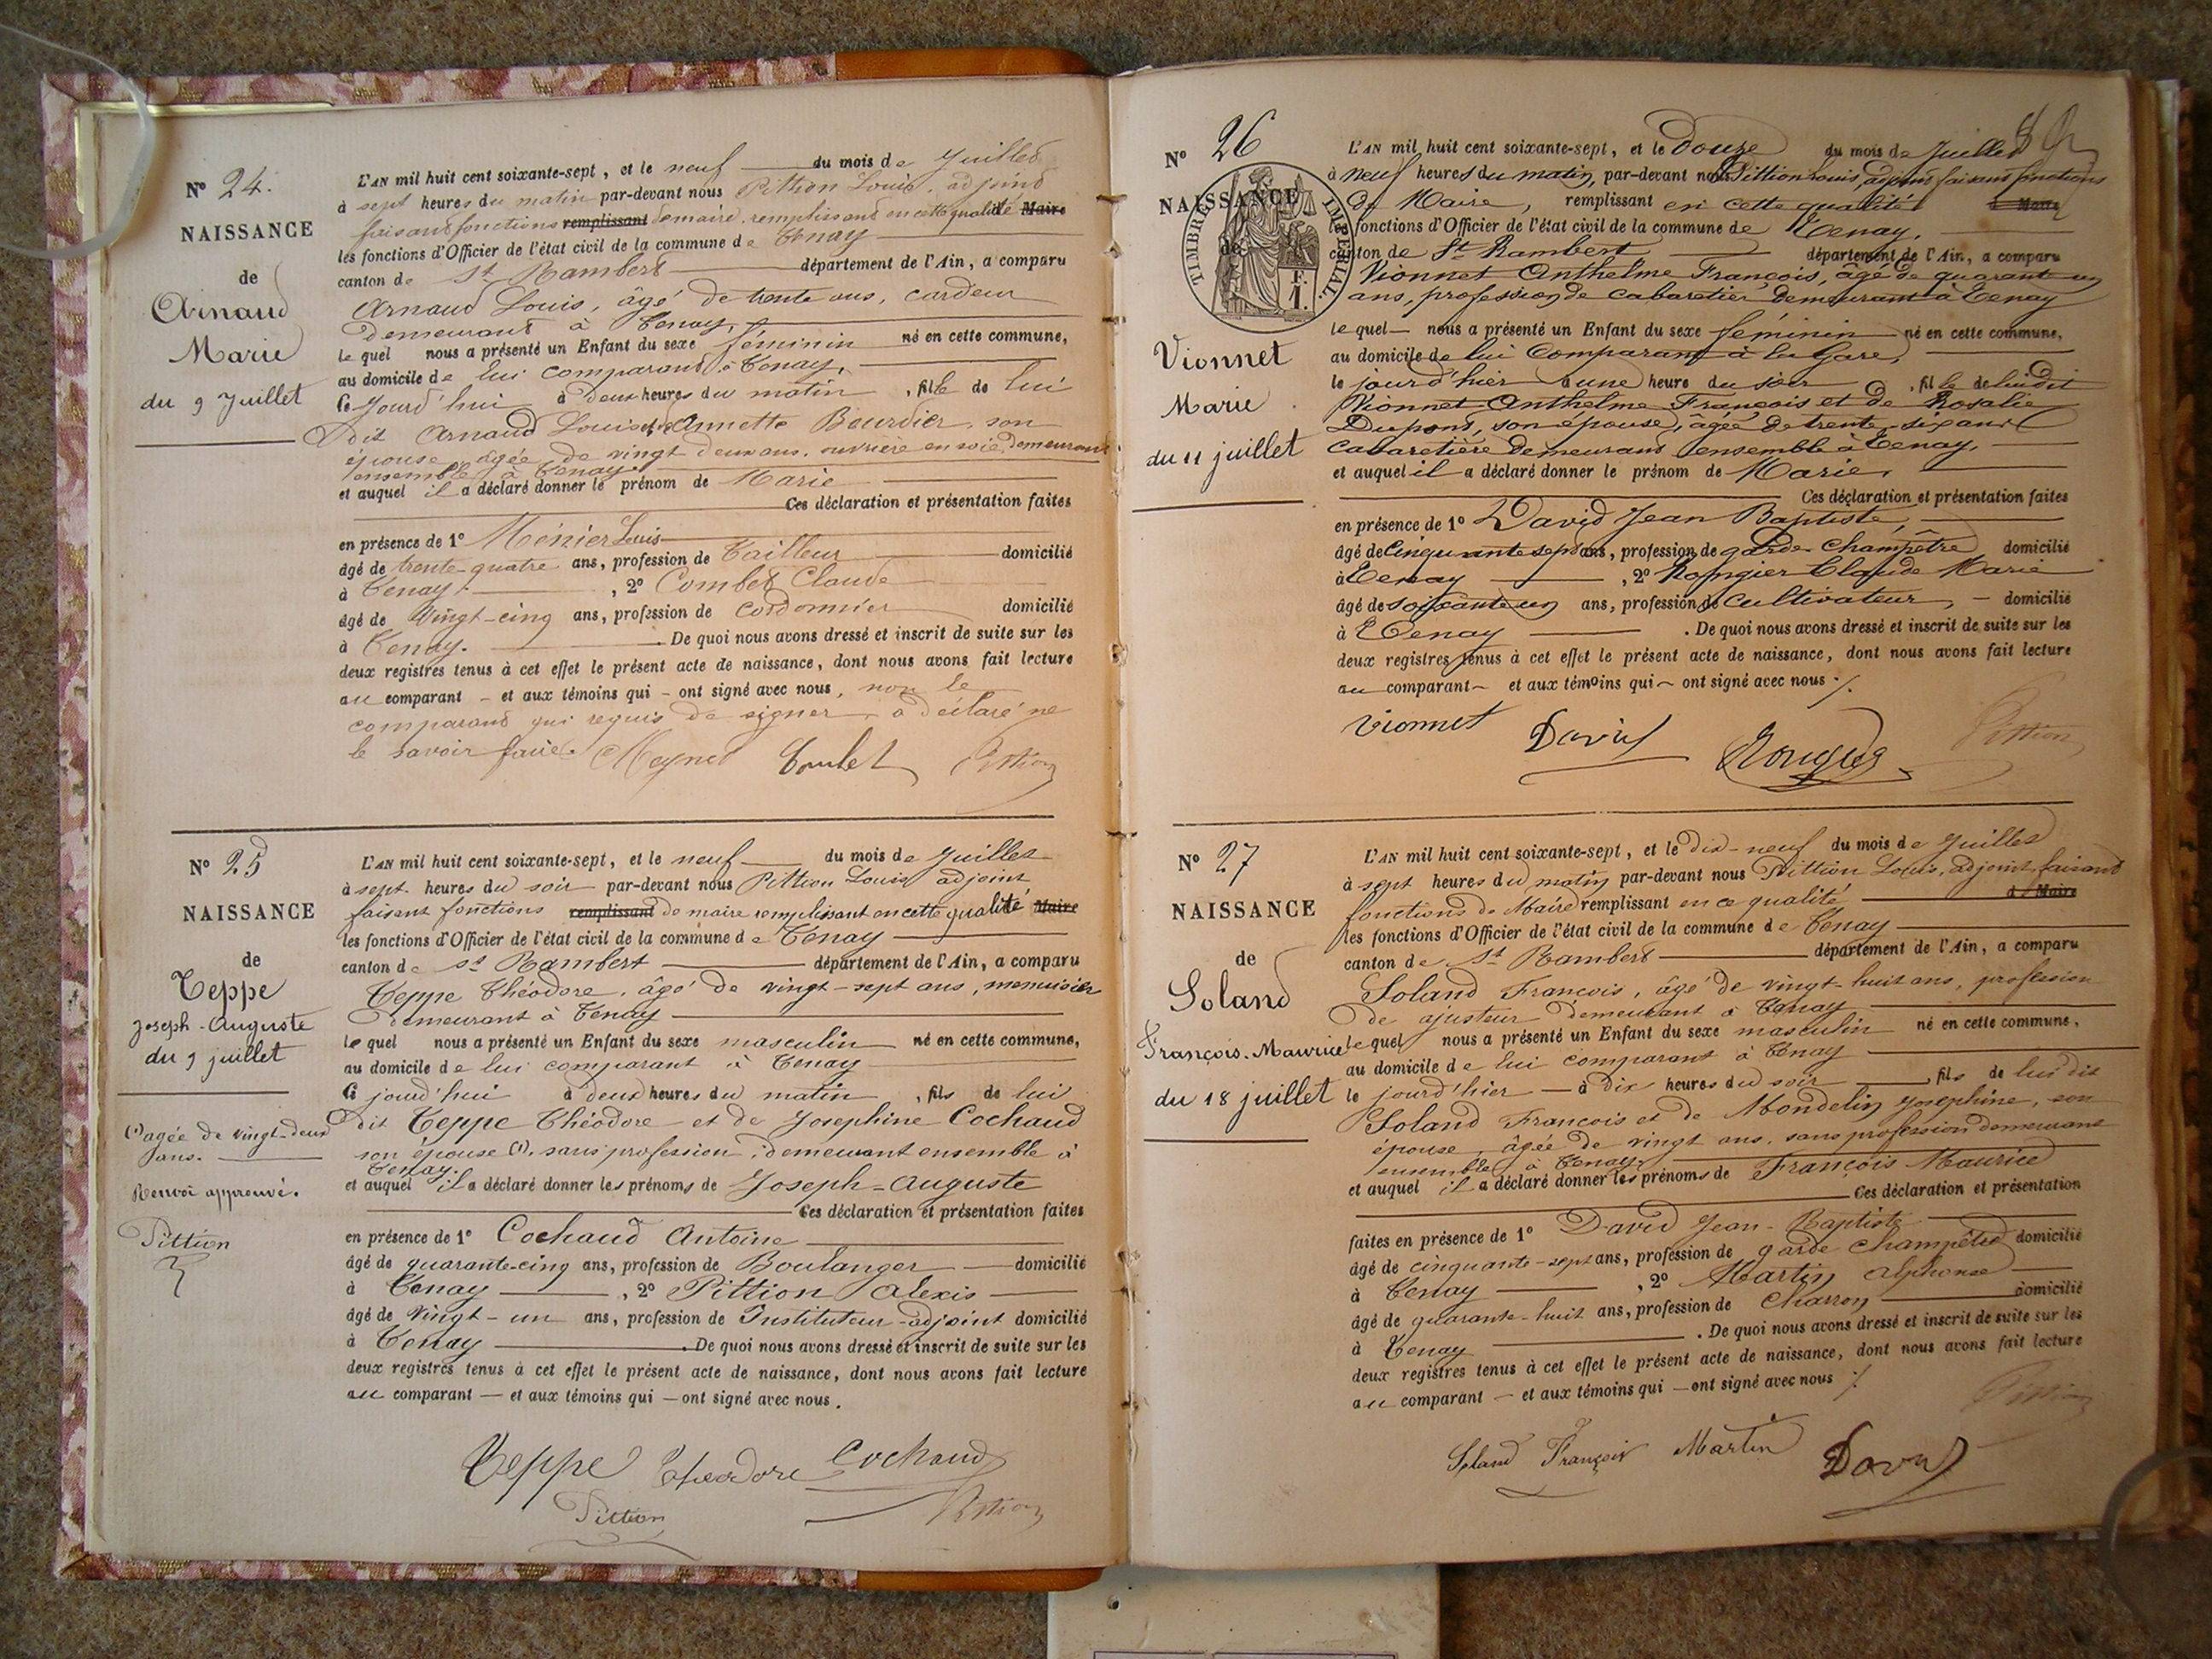 N° 24.
NAISSANCE
de
Arnaud
Marie
du 9 Juillet
L'AN mil huit cent soixante-sept, et le neuf du mois de Juillet
à sept heures du matin par-devant nous Pittion Louis, adjoint
faisant fonctions remplissant de maire, remplissant en cette qualité Maire
les fonctions d'Officier de l'état civil de la commune de Tenay
canton de St Rambert département de l'Ain, a comparu
Arnaud Louis, âgé de trente ans, cardeur
demeurant à Tenay,
le quel nous a présenté un Enfant du sexe féminin né en cette commune,
au domicile de lui comparant à Tenay,
ce jourd'hui à deux heures du matin, fille de lui
dit Arnaud Louis et de Annette Bourdier, son
épouse, âgée de vingt deux ans, ouvrière en soie, demeurant
ensemble à Tenay.
et auquel il a déclaré donner le prénom de Marie
Ces déclaration et présentation faites
en présence de 1° Louis
âgé de trente-quatre ans, profession de Tailleur domicilié
à Tenay, 2° Combet Claude
âgé de Vingt-cinq ans, profession de Cordonnier domicilié
à Tenay. De quoi nous avons dressé et inscrit de suite sur les
deux registres tenus à cet effet le présent acte de naissance, dont nous avons fait lecture
au comparant - et aux témoins qui - ont signé avec nous, non le
comparant qui requis de signer, a déclaré ne
le savoir faire. Combet Pittion
N° 25
NAISSANCE
de
Teppe
Joseph-Auguste
du 9 juillet
(1) agée de vingt-deux
ans.
Renvoi approuvé.
Pittion
L'AN mil huit cent soixante-sept, et le neuf du mois de Juillet
à sept heures du soir par-devant nous Pittion Louis adjoint
faisant fonctions remplissant de maire remplissant en cette qualité Maire
les fonctions d'Officier de l'état civil de la commune de Tenay
canton de St Rambert département de l'Ain, a comparu
Teppe Théodore, âgé de vingt-sept ans, menuisier
demeurant à Tenay
le quel nous a présenté un Enfant du sexe masculin né en cette commune,
au domicile de lui comparant à Tenay
ce jourd'hui à deux heures du matin, fils de lui
dit Teppe Théodore et de Josephine Cochaud
son épouse (1), sans profession, demeurant ensemble à
Tenay.
et auquel il a déclaré donner les prénoms de Joseph-Auguste
Ces déclaration et présentation faites
en présence de 1° Cochaud Antoine
âgé de quarante-cinq ans, profession de Boulanger domicilié
à Tenay, 2° Pittion Alexis
âgé de vingt-un ans, profession de Instituteur-adjoint domicilié
à Tenay. De quoi nous avons dressé et inscrit de suite sur les
deux registres tenus à cet effet le présent acte de naissance, dont nous avons fait lecture
au comparant — et aux témoins qui — ont signé avec nous.
Teppe Théodore Cochaud
Pittion Pittion
N° 26
NAISSANCE
de
TIMBRE IMPERIAL.
F.
1.
Vionnet
Marie
du 11 juillet
L'AN mil huit cent soixante-sept, et le Douze du mois de Juillet
à neuf heures du matin, par-devant nous Pittion Louis, adjoint faisant fonctions
de Maire, remplissant en cette qualité Maire
les fonctions d'Officier de l'état civil de la commune de Tenay,
canton de St Rambert département de l'Ain, a comparu
Vionnet Anthelme François, âgé de quarante un
ans, profession de cabaretier demeurant à Tenay
le quel nous a présenté un Enfant du sexe féminin né en cette commune,
au domicile de lui Comparant à la Gare,
le jourd'hier à une heure du soir, fille de lui dit
Vionnet Anthelme François et de Rosalie
Dupont, son épouse, âgée de trente six ans
cabaretière demeurant ensemble à Tenay,
et auquel il a déclaré donner le prénom de Marie,
Ces déclaration et présentation faites
en présence de 1° David Jean Baptiste,
âgé de cinquante sept ans, profession de garde Champêtre domicilié
à Tenay, 2° Rougier Claude Marie
âgé de soixante un ans, profession de Cultivateur, domicilié
à Tenay. De quoi nous avons dressé et inscrit de suite sur les
deux registres tenus à cet effet le présent acte de naissance, dont nous avons fait lecture
au comparant et aux témoins qui ont signé avec nous ./.
Vionnet David Rougier Pittion
N° 27
NAISSANCE
de
Soland
François-Maurice
du 18 juillet
L'AN mil huit cent soixante-sept, et le Dix-neuf du mois de Juillet
à sept heures du matin par-devant nous Pittion Louis, adjoint faisant
fonctions de Maire remplissant en ce qualité d Maire
les fonctions d'Officier de l'état civil de la commune de Tenay
canton de St Rambert département de l'Ain, a comparu
Soland François, âgé de vingt-huit ans, profession
de ajusteur demeurant à Tenay
le quel nous a présenté un Enfant du sexe masculin né en cette commune,
au domicile de lui comparant à Tenay
le jourd'hier — à dix heures du soir fils de lui dit
Soland François et de Mondelin Josephine, son
épouse, âgée de vingt ans, sans profession demeurant
ensemble à Tenay
et auquel il a déclaré donner les prénoms de François Maurice
Ces déclaration et présentation
faites en présence de 1° David Jean-Baptiste
âgé de cinquante-sept ans, profession de garde champêtre domicilié
à Tenay, 2° Martin Alphonse
âgé de quarante-huit ans, profession de Charron domicilié
à Tenay. De quoi nous avons dressé et inscrit de suite sur les
deux registres tenus à cet effet le présent acte de naissance, dont nous avons fait lecture
au comparant — et aux témoins qui — ont signé avec nous ./.
Soland François Martin David Pittion